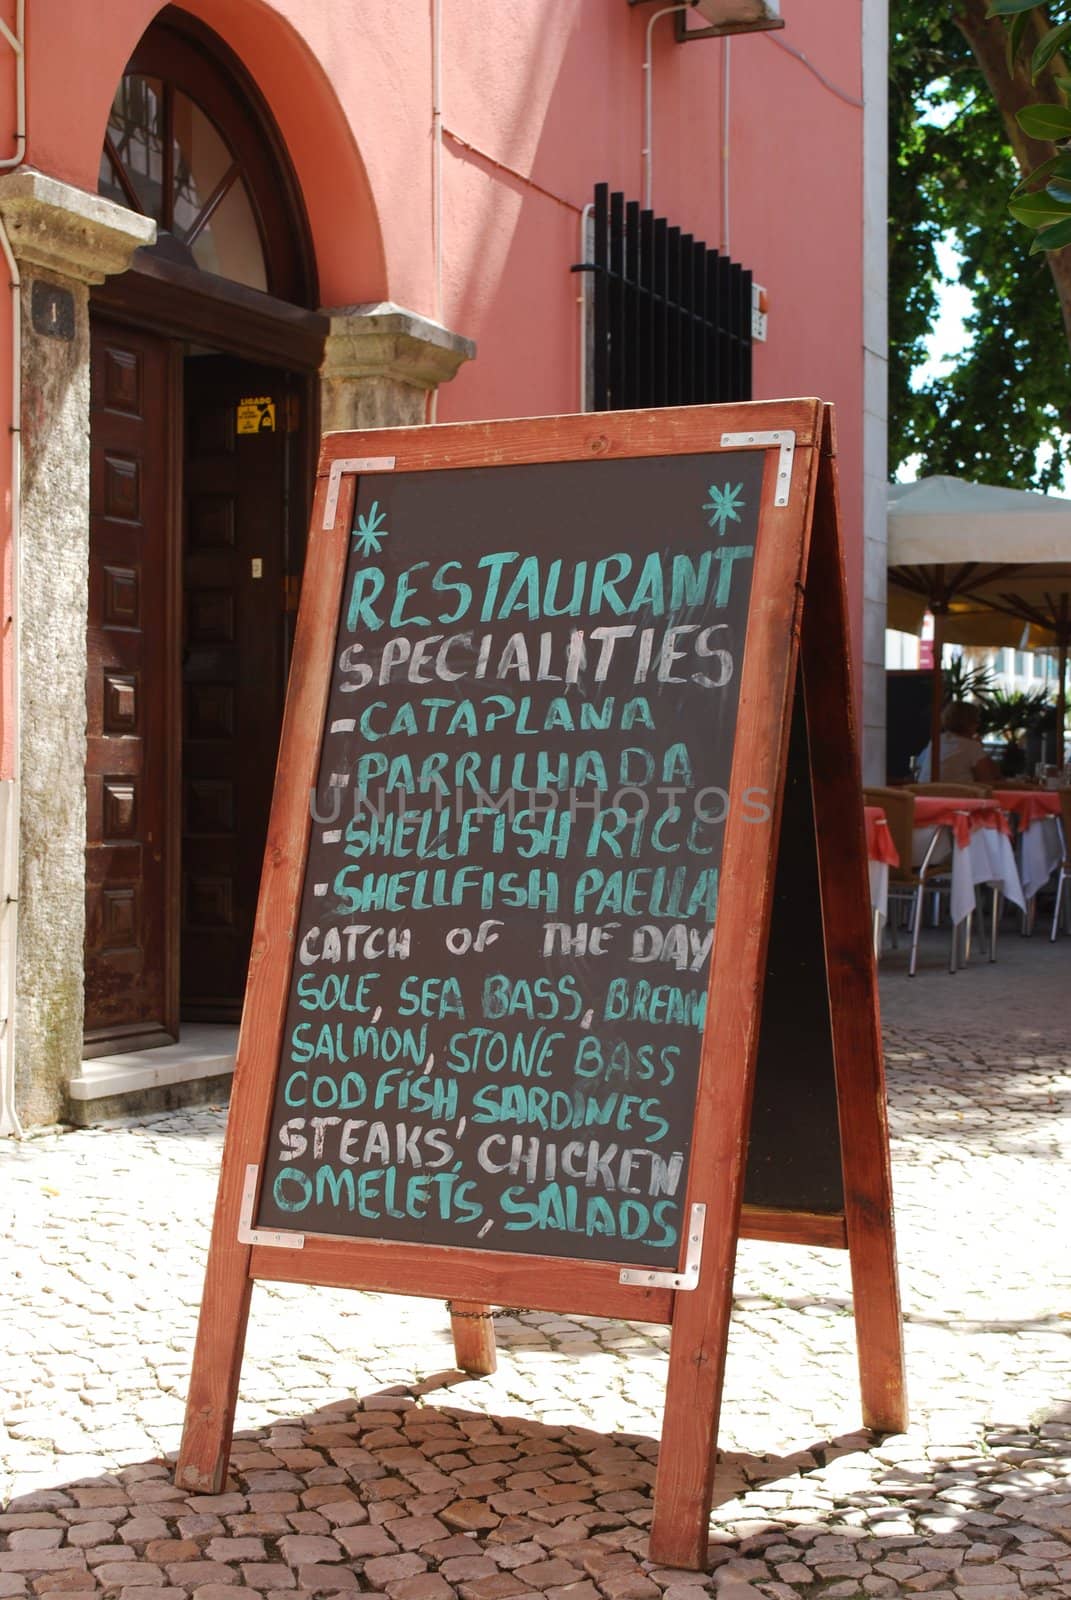 1
LIGADO
RESTAURANT
SPECIALITIES
- CATAPLANA
- PARRILHADA
- SHELLFISH RICE
- SHELLFISH PAELLA
CATCH OF THE DAY
SOLE, SEA BASS, BREAM
SALMON, STONE BASS
CODFISH SARDINES
STEAKS' CHICKEN
OMELETS, SALADS
UNLIMPHOTOS